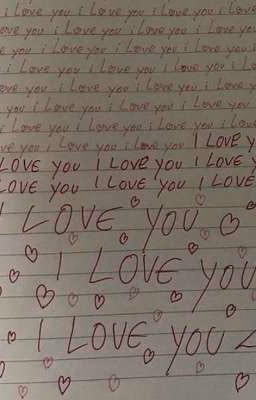 i Love you i Love you i Love you
Love you i Love you i Love you i Love
ve you i Love you i Love you i Love you
Love you i Love you i Love you i
i Love you i Love you i Love you i Lo
Love you i Love you i Love you i Love
you i Love you i Love you i Love you
Love you i Love you i Love you i Love
ve you i Love you i Love you I LOVE y
LOVE you I LOVE you I LOVE y
LOVE you I LOVE you I LOVE
I LOVE YOU
I LOVE YOU
I LOVE YOU